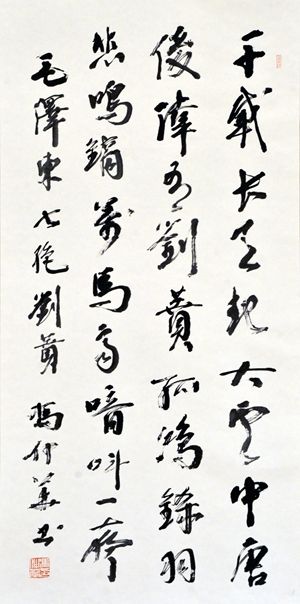 千載长天起大雲中唐
俊偉有劉蕡孤鴻鎩羽
悲鳴鏑萬馬齊喑叫一聲
毛澤東七絶劉蕡 馮 书